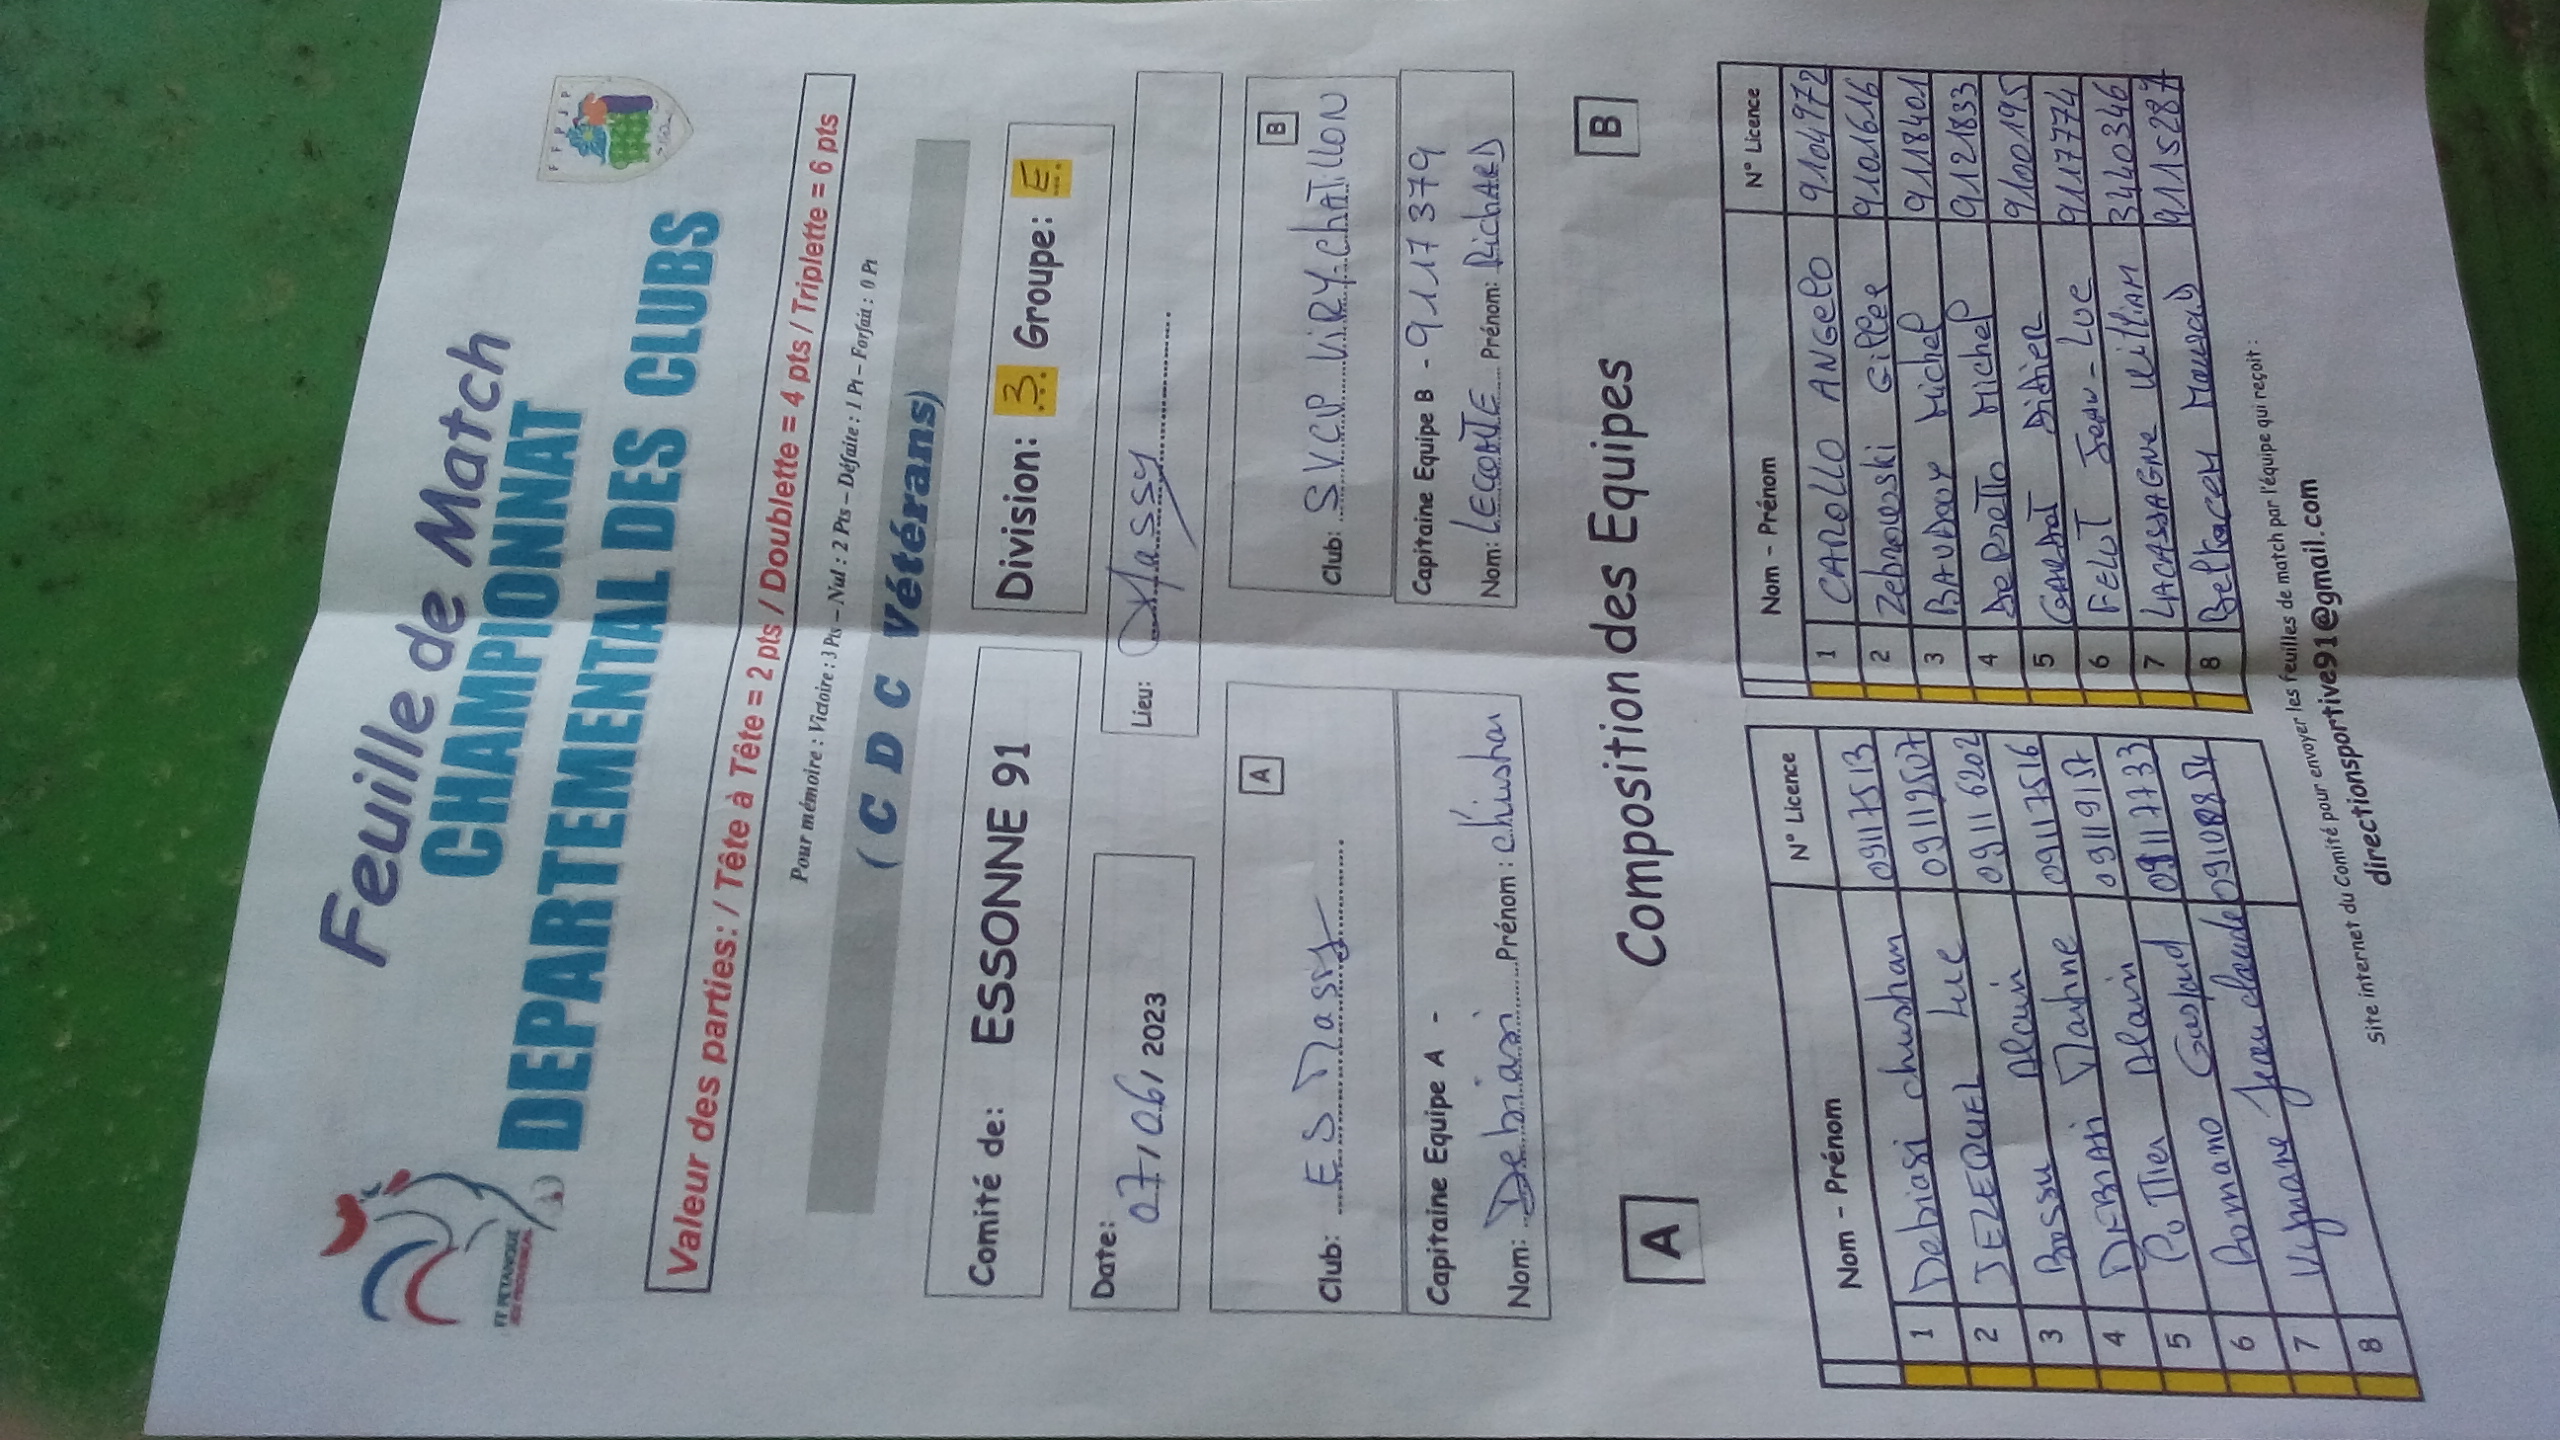 Feuille de Match
CHAMPIONNAT
DEPARTEMENTAL DES CLUBS
FF PETANQUE
F F P J P
Valeur des parties: / Tête à Tête = 2 pts / Doublette = 4 pts / Triplette = 6 pts
Pour mémoire : Victoire : 3 Pts – Nul : 2 Pts – Défaite : 1 Pt – Forfait : 0 Pt
( C D C Vétérans)
Comité de: ESSONNE 91
Division: 3 Groupe: E
Date: 07/06/2023
Lieu: Massy
A
Club: E S Massy
Capitaine Equipe A -
Nom: Debiasi Prénom: christian
B
Club: SVCP VIRY-CHATILLON
Capitaine Equipe B - 9117379
Nom: LECOMTE Prénom: RICHARD
A Composition des Equipes B
Nom - Prénom N° Licence
1 Debiasi christian 09117513
2 JEZEQUEL Luc 09112507
3 Bossu Alain 09116202
4 DEBIASI Martine 09117516
5 Pottier Alain 09119157
6 Romano Gaspard 09117733
7 Jean claude 09108854
8
Nom - Prénom N° Licence
1 CAROLLO ANGELO 9104972
2 Zebrowski Gilles 9101616
3 BAUDRY Michel 9118401
4 Michel 9121833
5 Didier 9100195
6 FELUT Jean-Luc 9117774
7 LACASSAGNE William 3440346
8 Belkacem Mourad 9115287
Site internet du Comité pour envoyer les feuilles de match par l'équipe qui reçoit :
directionsportive91@gmail.com